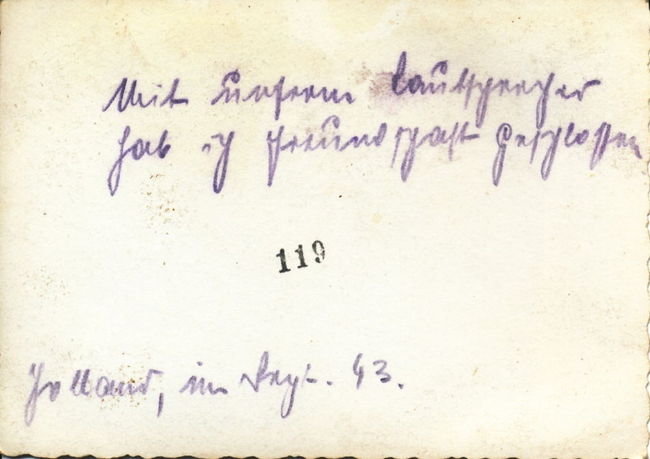 Mit unserm Lautsprecher
hab ich Freundschaft geschlossen
119
Holland, im Sept. 43.